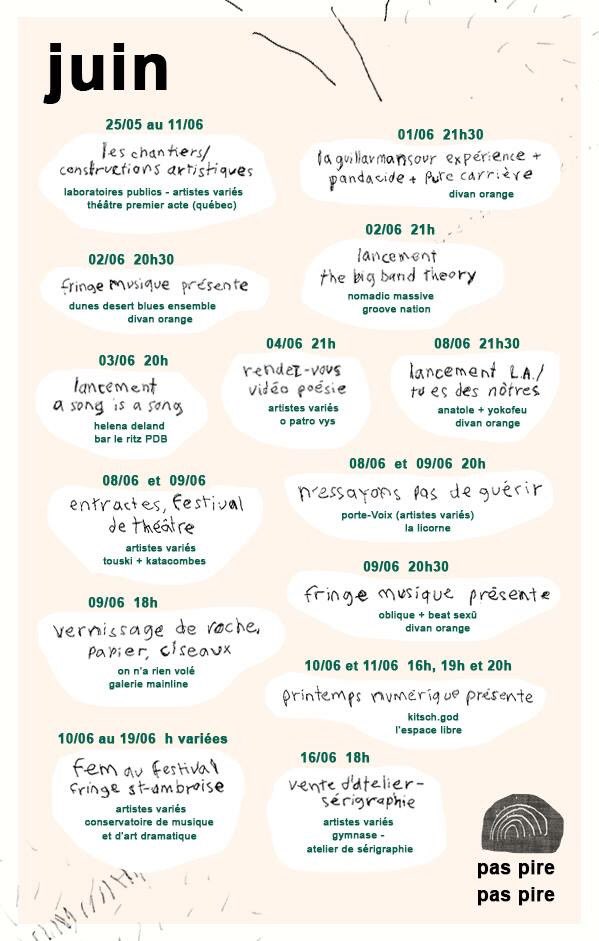 juin
25/05 au 11/06
les chantiers/
constructions artistiques
laboratoires publics - artistes variés
théâtre premier acte (québec)
01/06 21h30
la guillaumansour expérience +
pandacide + pure carrière
divan orange
02/06 20h30
fringe musique présente
dunes desert blues ensemble
divan orange
02/06 21h
lancement
the big band theory
nomadic massive
groove nation
03/06 20h
lancement
a song is a song
helena deland
bar le ritz PDB
04/06 21h
rendez-vous
vidéo poésie
artistes variés
o patro vys
08/06 21h30
lancement L.A./
tu es des nôtres
anatole + yokofeu
divan orange
08/06 et 09/06
entractes, festival
de théâtre
artistes variés
touski + katacombes
08/06 et 09/06 20h
n'essayons pas de guérir
porte-Voix (artistes variés)
la licorne
09/06 18h
vernissage de roche,
papier, ciseaux
on n'a rien volé
galerie mainline
09/06 20h30
fringe musique présente
oblique + beat sexü
divan orange
10/06 et 11/06 16h, 19h et 20h
printemps numérique présente
kitsch.god
l'espace libre
10/06 au 19/06 h variées
fem au festival
fringe st-ambroise
artistes variés
conservatoire de musique
et d'art dramatique
16/06 18h
vente d'atelier-
sérigraphie
artistes variés
gymnase -
atelier de sérigraphie
pas pire
pas pire